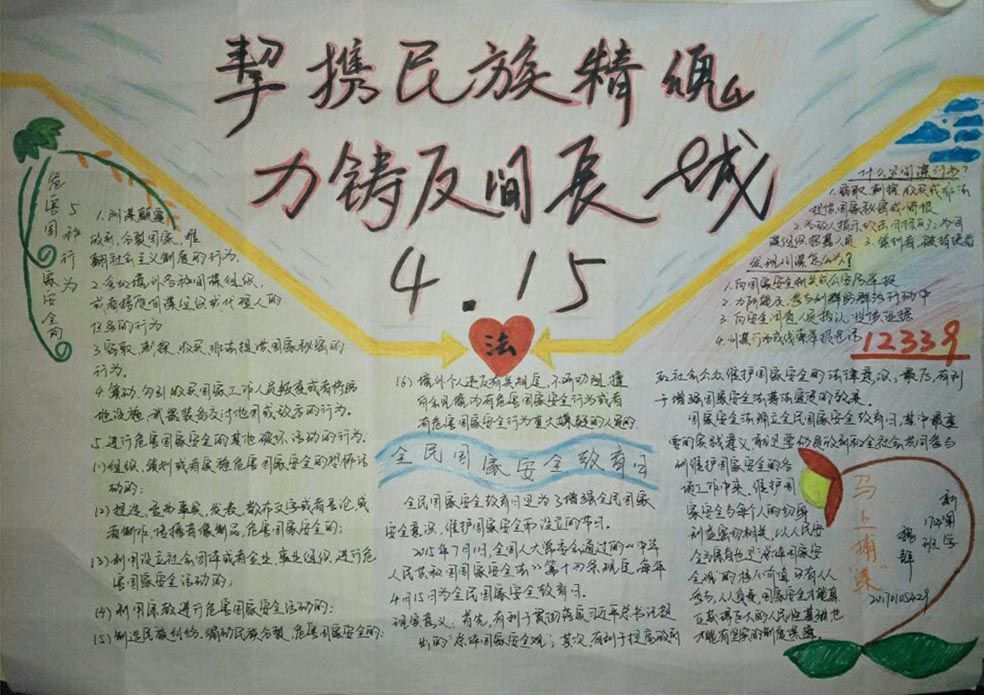 挈携民族精魂
力铸反间长城
4.15
法
危害国家安全的
5种行为
1.阴谋颠覆
政府,分裂国家,推
翻社会主义制度的行为.
2.参加境外各种间谍组织,
或者接受间谍组织或代理人的
任务的行为
3.窃取,刺探,收买,非法提供国家秘密的
行为.
4.策动,勾引收买国家工作人员叛变或者将防
地设施,武器装备交付他国或敌方的行为.
5.进行危害国家安全的其他破坏活动的行为.
(1)组织,策划或者实施危害国家安全的恐怖活
动的;
(2)捏造,歪曲事实,发表,散布文字或者言论,或
者制作,传播音像制品,危害国家安全的;
(3)利用设立社会团体或者企业,事业组织,进行危
害国家安全活动的;
(4)利用宗教进行危害国家安全活动的;
(5)制造民族纠纷,煽动民族分裂,危害国家安全的;
(6)境外个人违反有关规定,不听劝阻,擅
自会见境内有危害国家安全行为或者
有危害国家安全行为重大嫌疑的人员的.
全民国家安全教育日
全民国家安全教育日是为了增强全民国家
安全意识,维护国家安全而设立的节日.
2015年7月1日,全国人大常委会通过的《中华
人民共和国国家安全法》第十四条规定,每年
4月15日为全民国家安全教育日.
现实意义:首先,有利于贯彻落实习近平总书记提
出的"总体国家安全观";其次,有利于提高政府
什么是间谍行为?
1.窃取,刺探,收买或非法
提供国家秘密或情报
2.为敌人指示攻击目标的;为间
谍组织招募人员 3.策划者,破坏者
发现间谍怎么办?
1.向国家安全机关或公安局举报
2.力所能及,参与到群防群治行动中
3.向安全调查人员指认,提供证据
4.间谍行为或线索举报电话
12339
及社会公众维护国家安全的法律意识;最后,有利
于增强国家安全法普法宣传的效果.
国家安全法确立全民国家安全教育日,其中最重
要的实践意义,就是要动员政府和全社会共同参与
到维护国家安全的各
项工作中来,维护国
家安全与每个人的切身
利益密切相关,以人民安
全为宗旨也是"总体国家安
全观"的核心价值.只有人人
参与,人人负责,国家安全才能真
正获得巨大的人民性基础,也
才能有坚实的制度保障.
马上捕"来"
新闻学
17年班
杨群
20170105429